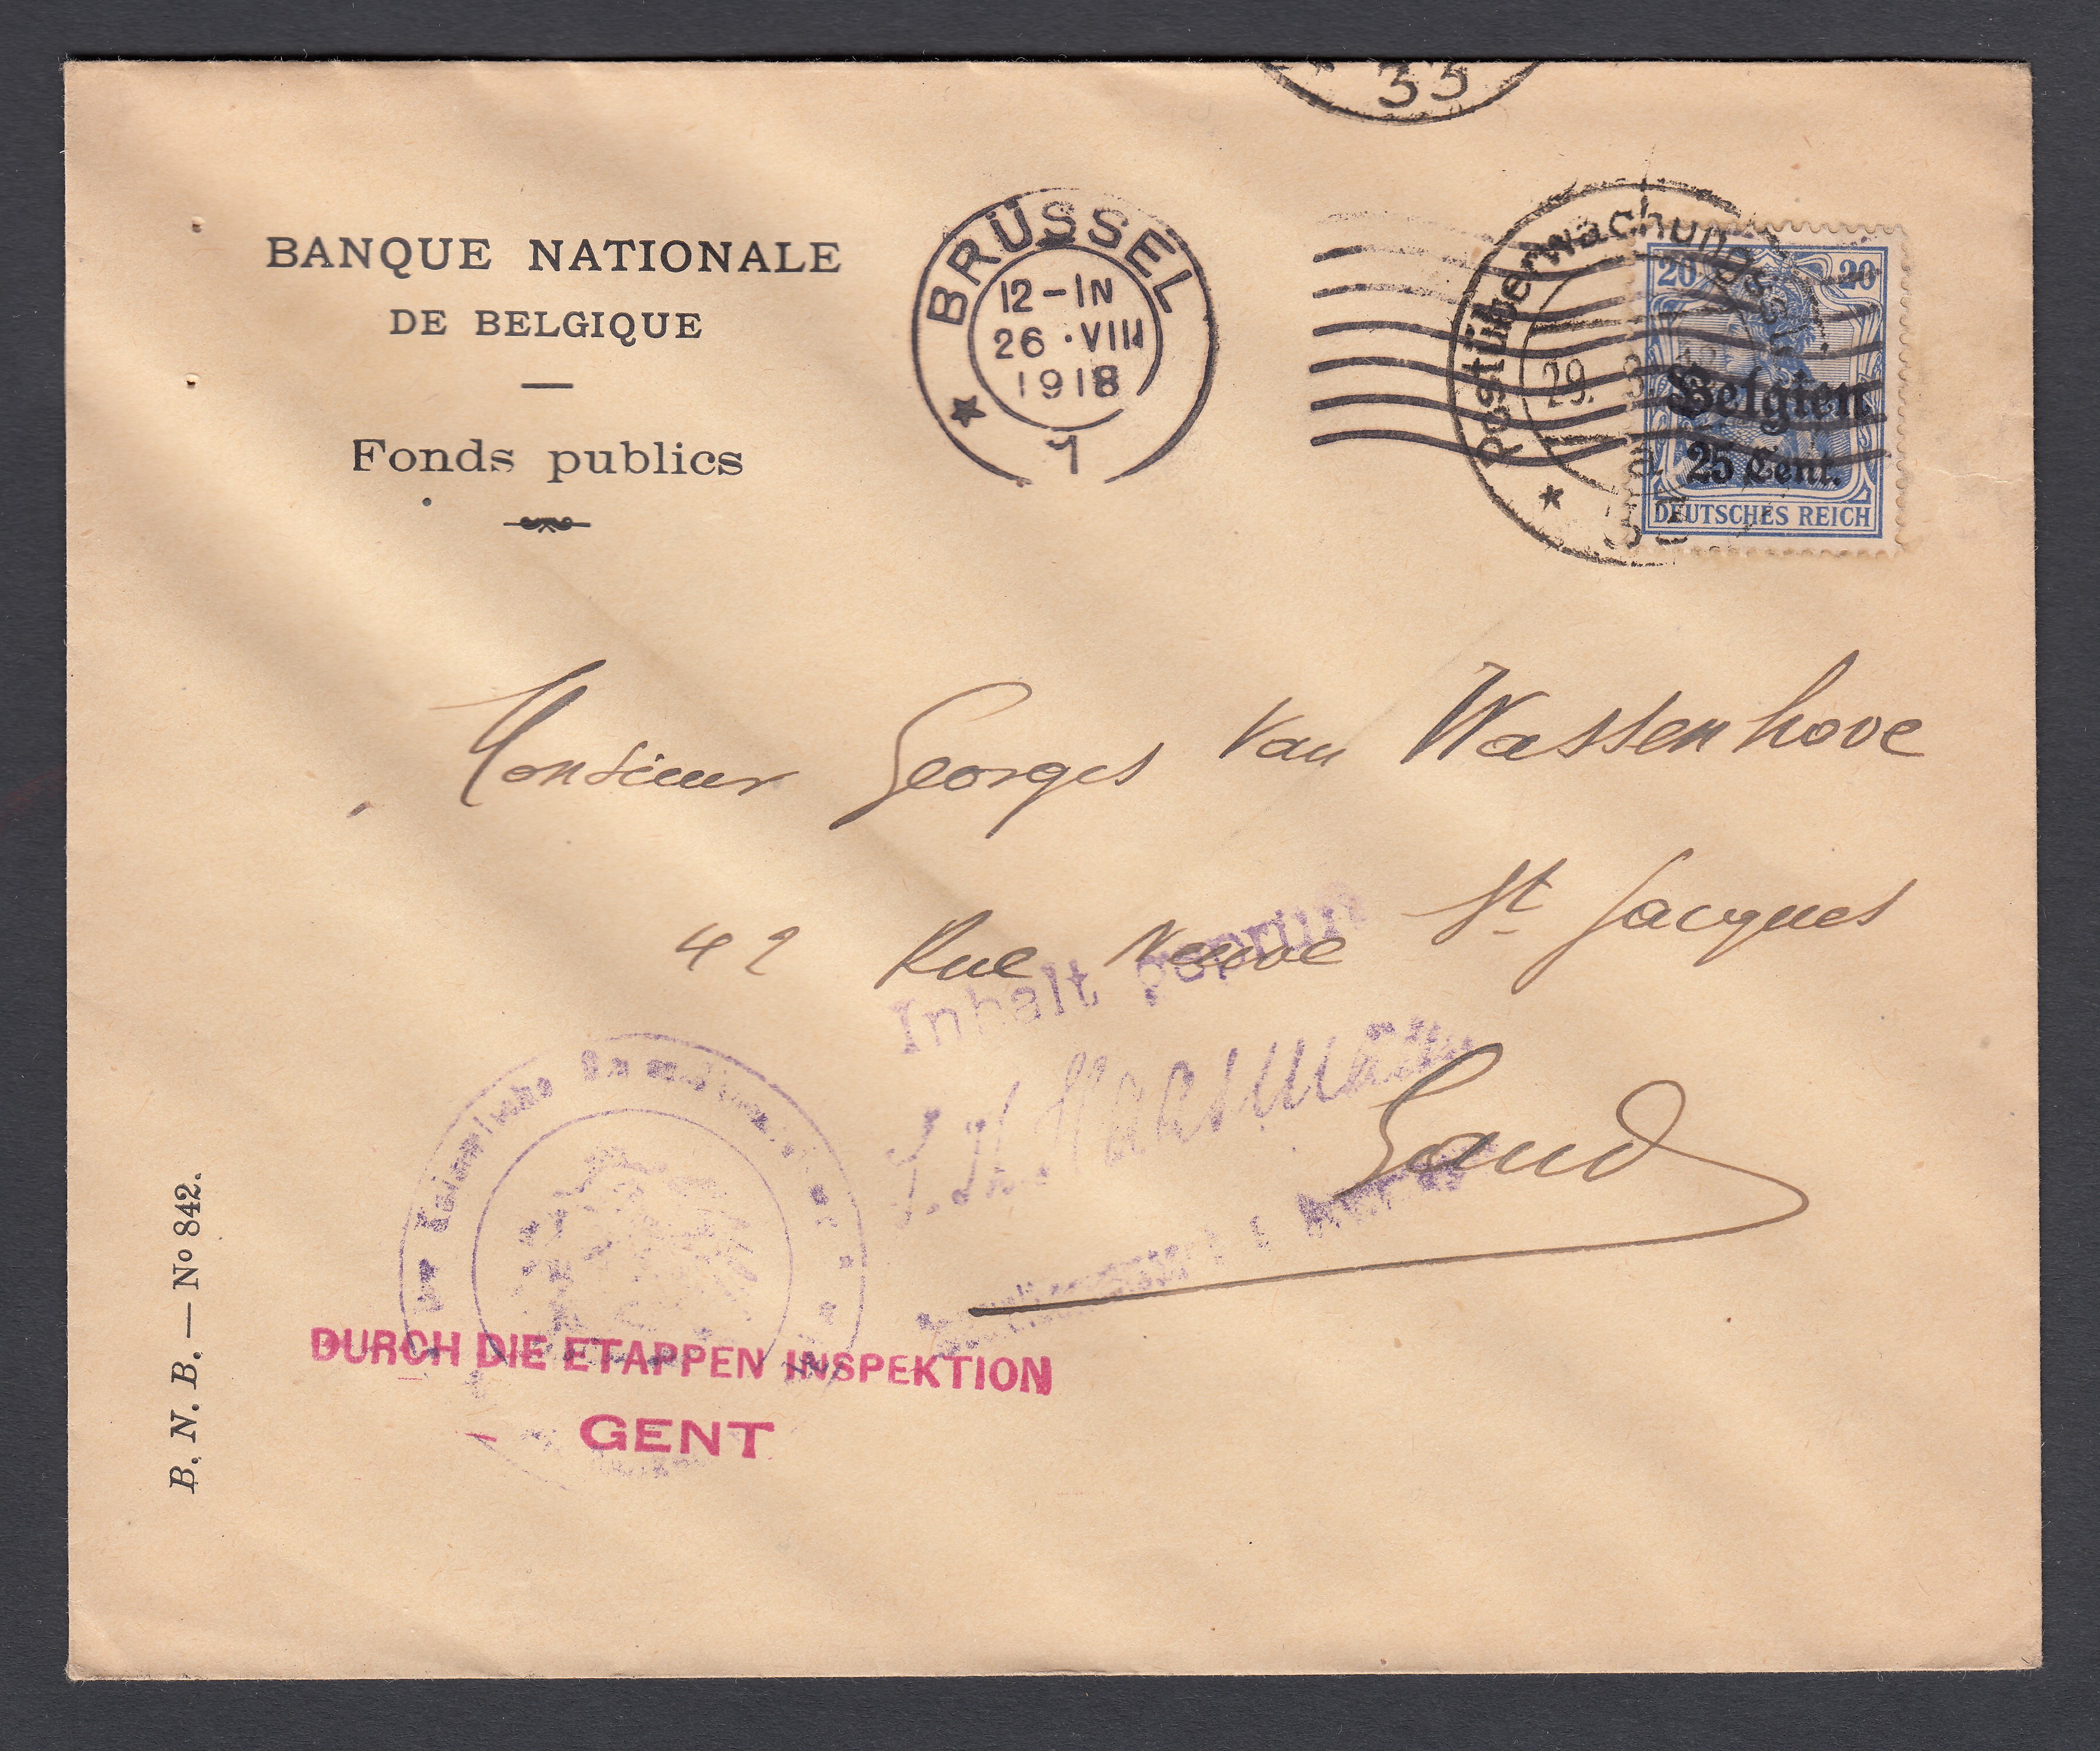 33
BANQUE NATIONALE
DE BELGIQUE
Fonds publics
BRÜSSEL
12-1N
26.VIII
1918
1
Postüberwachungs
29. 8.
20 20
Belgien
25 Cent.
DEUTSCHES REICH
Monsieur Georges Van Wassenhove
42 Rue Neuve St Jacques
Gand
Inhalt geprüft
DURCH DIE ETAPPEN INSPEKTION
GENT
B. N. B. — No 842.